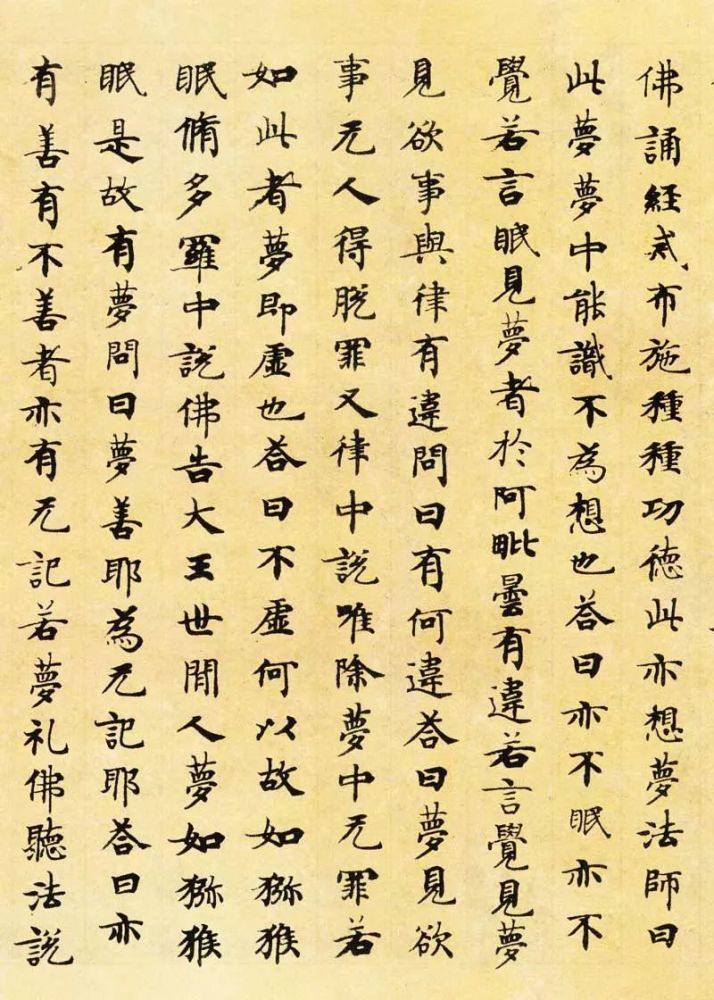 佛誦経貳布施種種功徳此亦想夢法師曰
此夢夢中能識不為想也荅曰亦不眠亦不
覺若言眠見夢者於阿毗曇有違若言覺見夢
見欲事與律有違問曰有何違荅曰夢見欲
事无人得脱罪又律中説唯除夢中无罪若
如此者夢即虚也荅曰不虚何以故如猕猴
眠脩多羅中説佛告大王世間人夢如猕猴
眠是故有夢問曰夢善耶為无記耶荅曰亦
有善有不善者亦有无記若夢礼佛聽法説